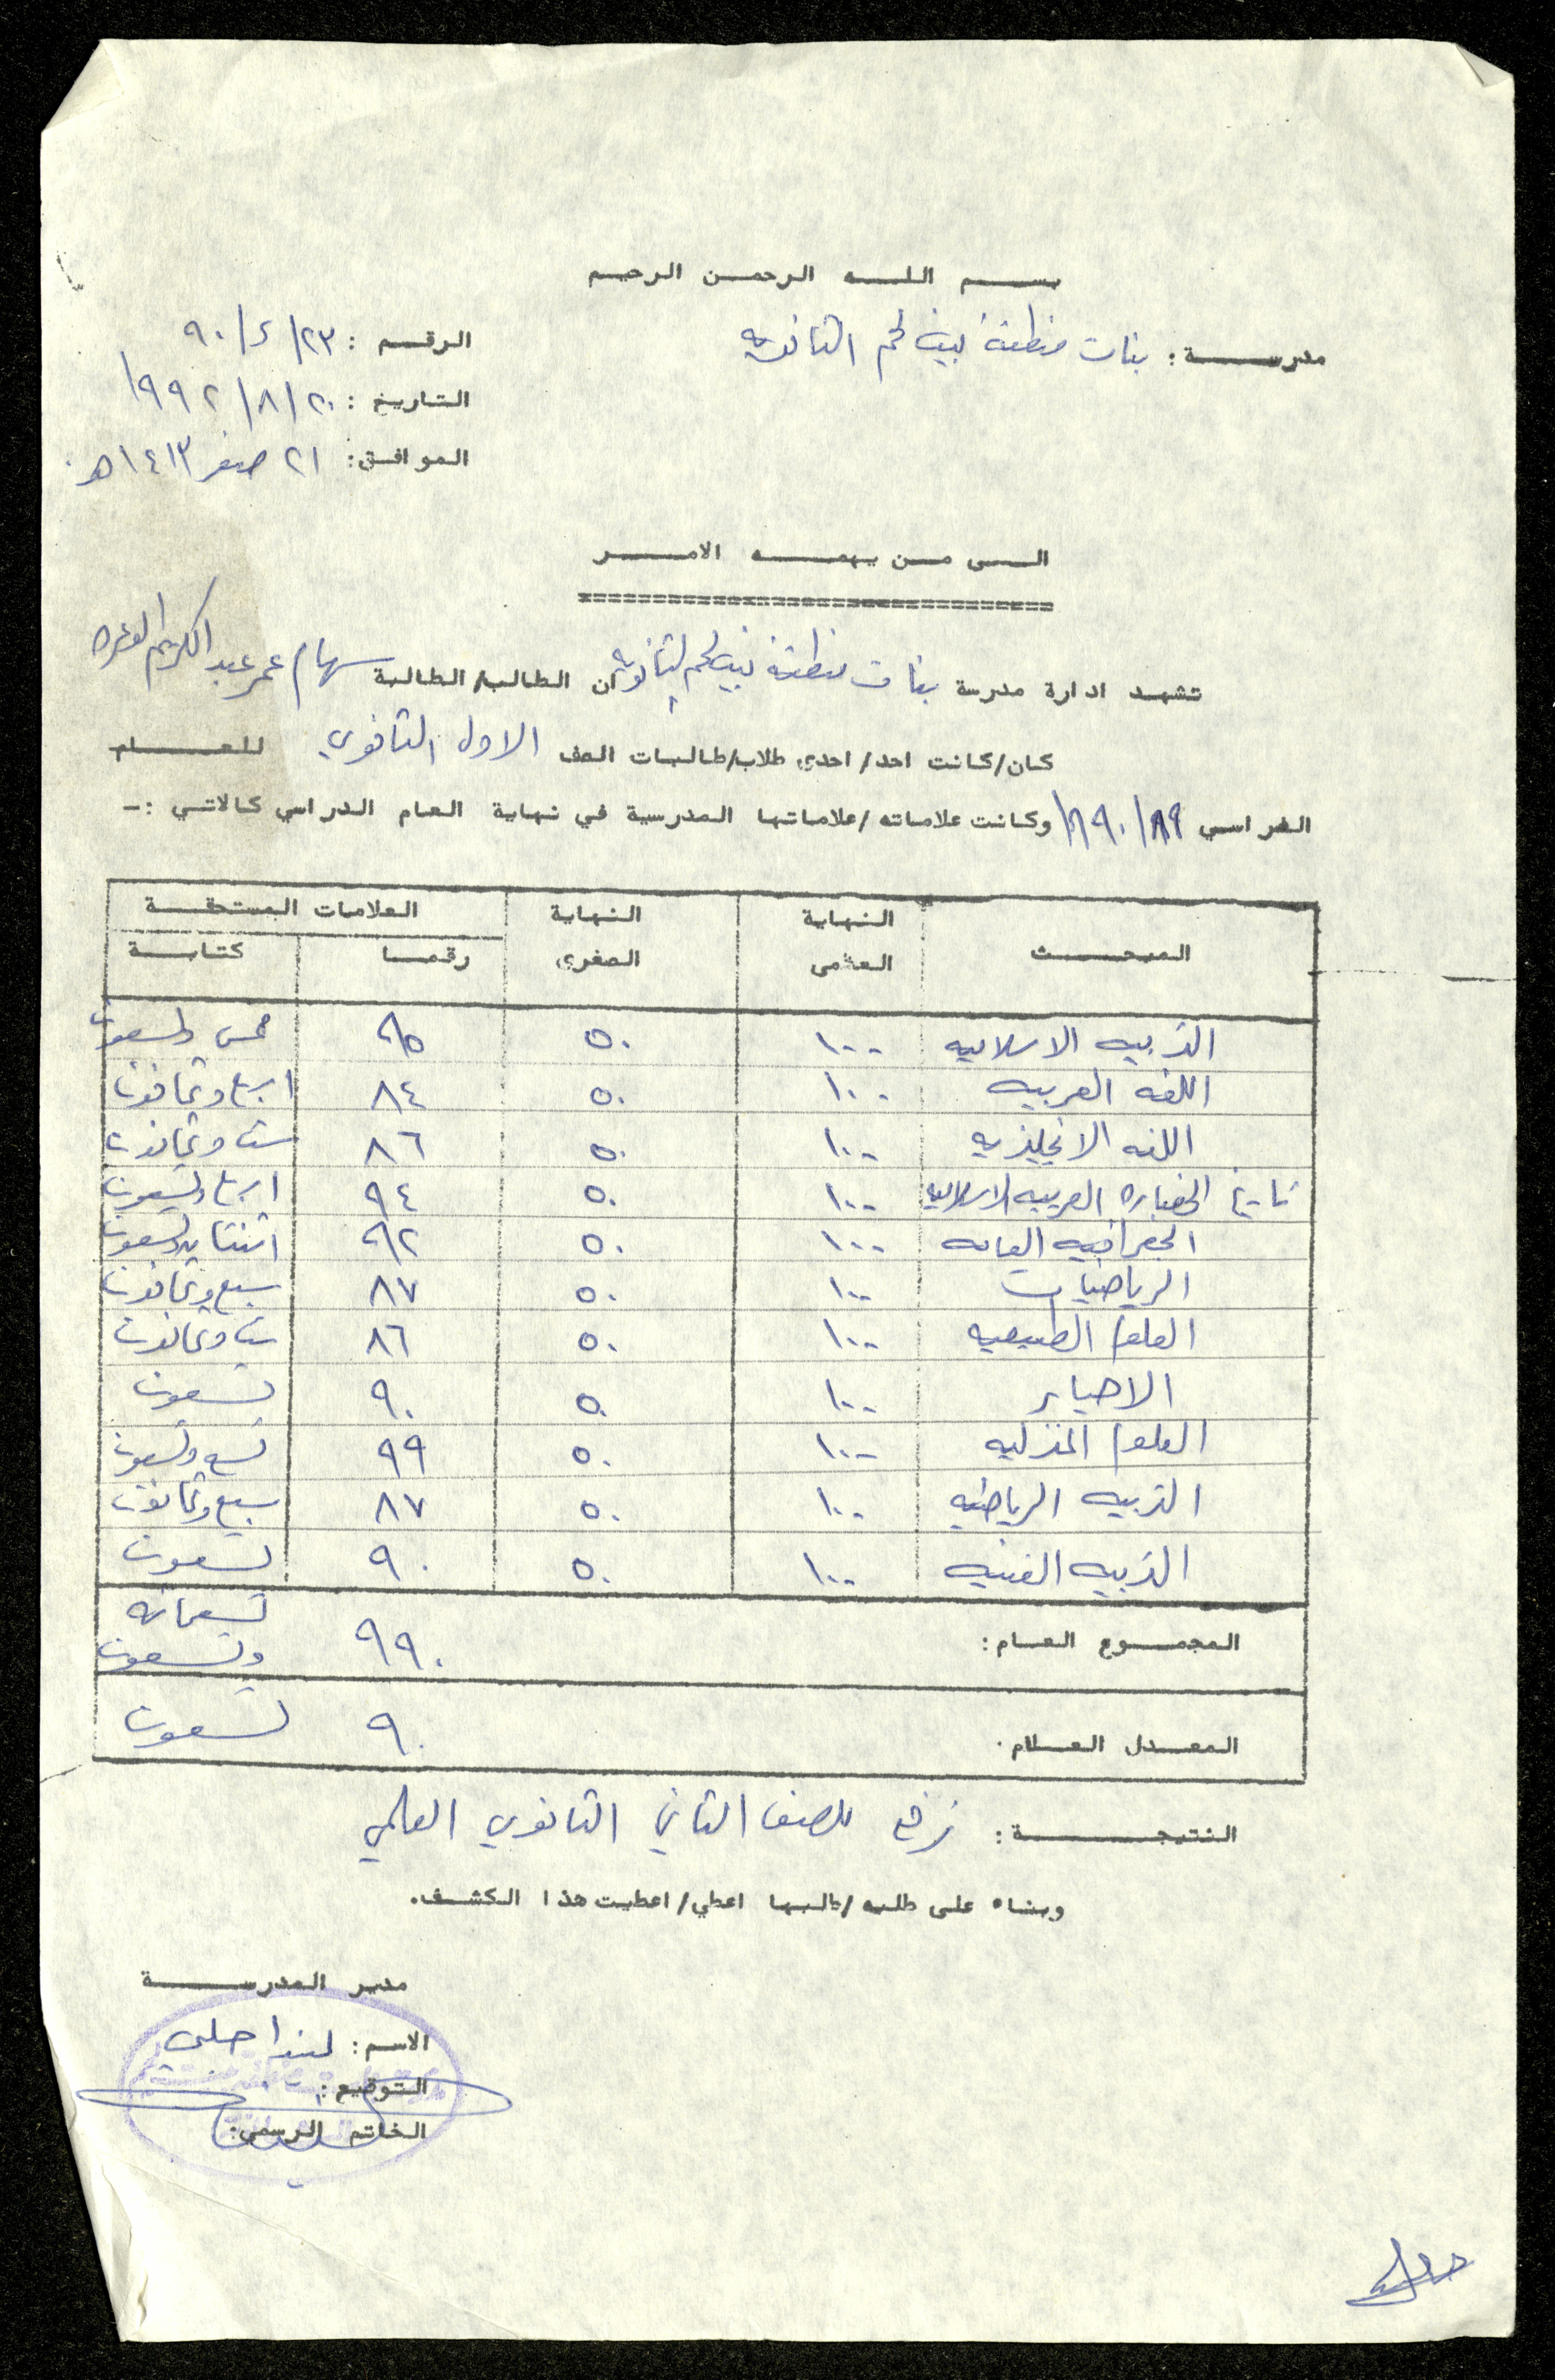 بسم الله الرحمن الرحيم
مدرسة: بنات منطقة بيت لحم الثانويه
الرقم: ٩٠/٤/٢٣
التاريخ: ١٩٩٢/٨/٢٠
الموافق: ٢١ صفر ١٤١٣هـ
الى من يهمه الامر
تشهد ادارة مدرسة بنات منطقة بيت لحم الثانويه ان الطالب/الطالبة سهام عمر عبد الكريم
كان/كانت احد/احدى طلاب/طالبات الصف الاول الثانوي للعام
الدراسي ٨٩/١٩٩٠ وكانت علاماته/علاماتها المدرسية في نهاية العام الدراسي كالاتي :-
المبحث النهاية العظمى النهاية الصغرى العلامات المستحقة
رقما كتابة
التربيه الاسلاميه ١٠٠ ٥٠ ٩٥ خمس وتسعون
اللغه العربيه ١٠٠ ٥٠ ٨٤ اربع وثمانون
اللغه الانجليزيه ١٠٠ ٥٠ ٨٦ ست وثمانون
تاريخ الحضاره العربيه الاسلاميه ١٠٠ ٥٠ ٩٤ اربع وتسعون
الجغرافيه العامه ١٠٠ ٥٠ ٩٢ اثنتان وتسعون
الرياضيات ١٠٠ ٥٠ ٨٧ سبع وثمانون
العلوم الطبيعيه ١٠٠ ٥٠ ٨٦ ست وثمانون
الاحياء ١٠٠ ٥٠ ٩٠ تسعون
العلوم المنزليه ١٠٠ ٥٠ ٩٩ تسع وتسعون
التربيه الرياضيه ١٠٠ ٥٠ ٨٧ سبع وثمانون
التربيه الفنيه ١٠٠ ٥٠ ٩٠ تسعون
المجموع العام: ٩٩٠ تسعمائه وتسعون
المعدل العام. ٩٠ تسعون
النتيجة: ترفع للصف الثاني الثانوي العلمي
وبناء على طلبه/طلبها اعطي/اعطيت هذا الكشف.
مدير المدرسة
الاسم: ليندا حلبي
التوقيع:
الخاتم الرسمي: